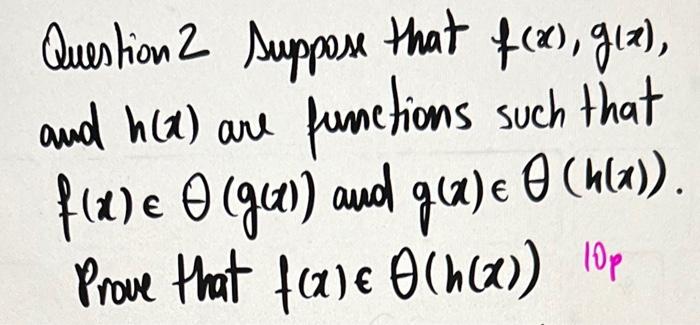 Question 2 Suppose that f(x), g(x),
and h(x) are functions such that
f(x) ∈ θ (g(x)) and g(x) ∈ θ (h(x)).
Prove that f(x) ∈ θ(h(x)) 10p